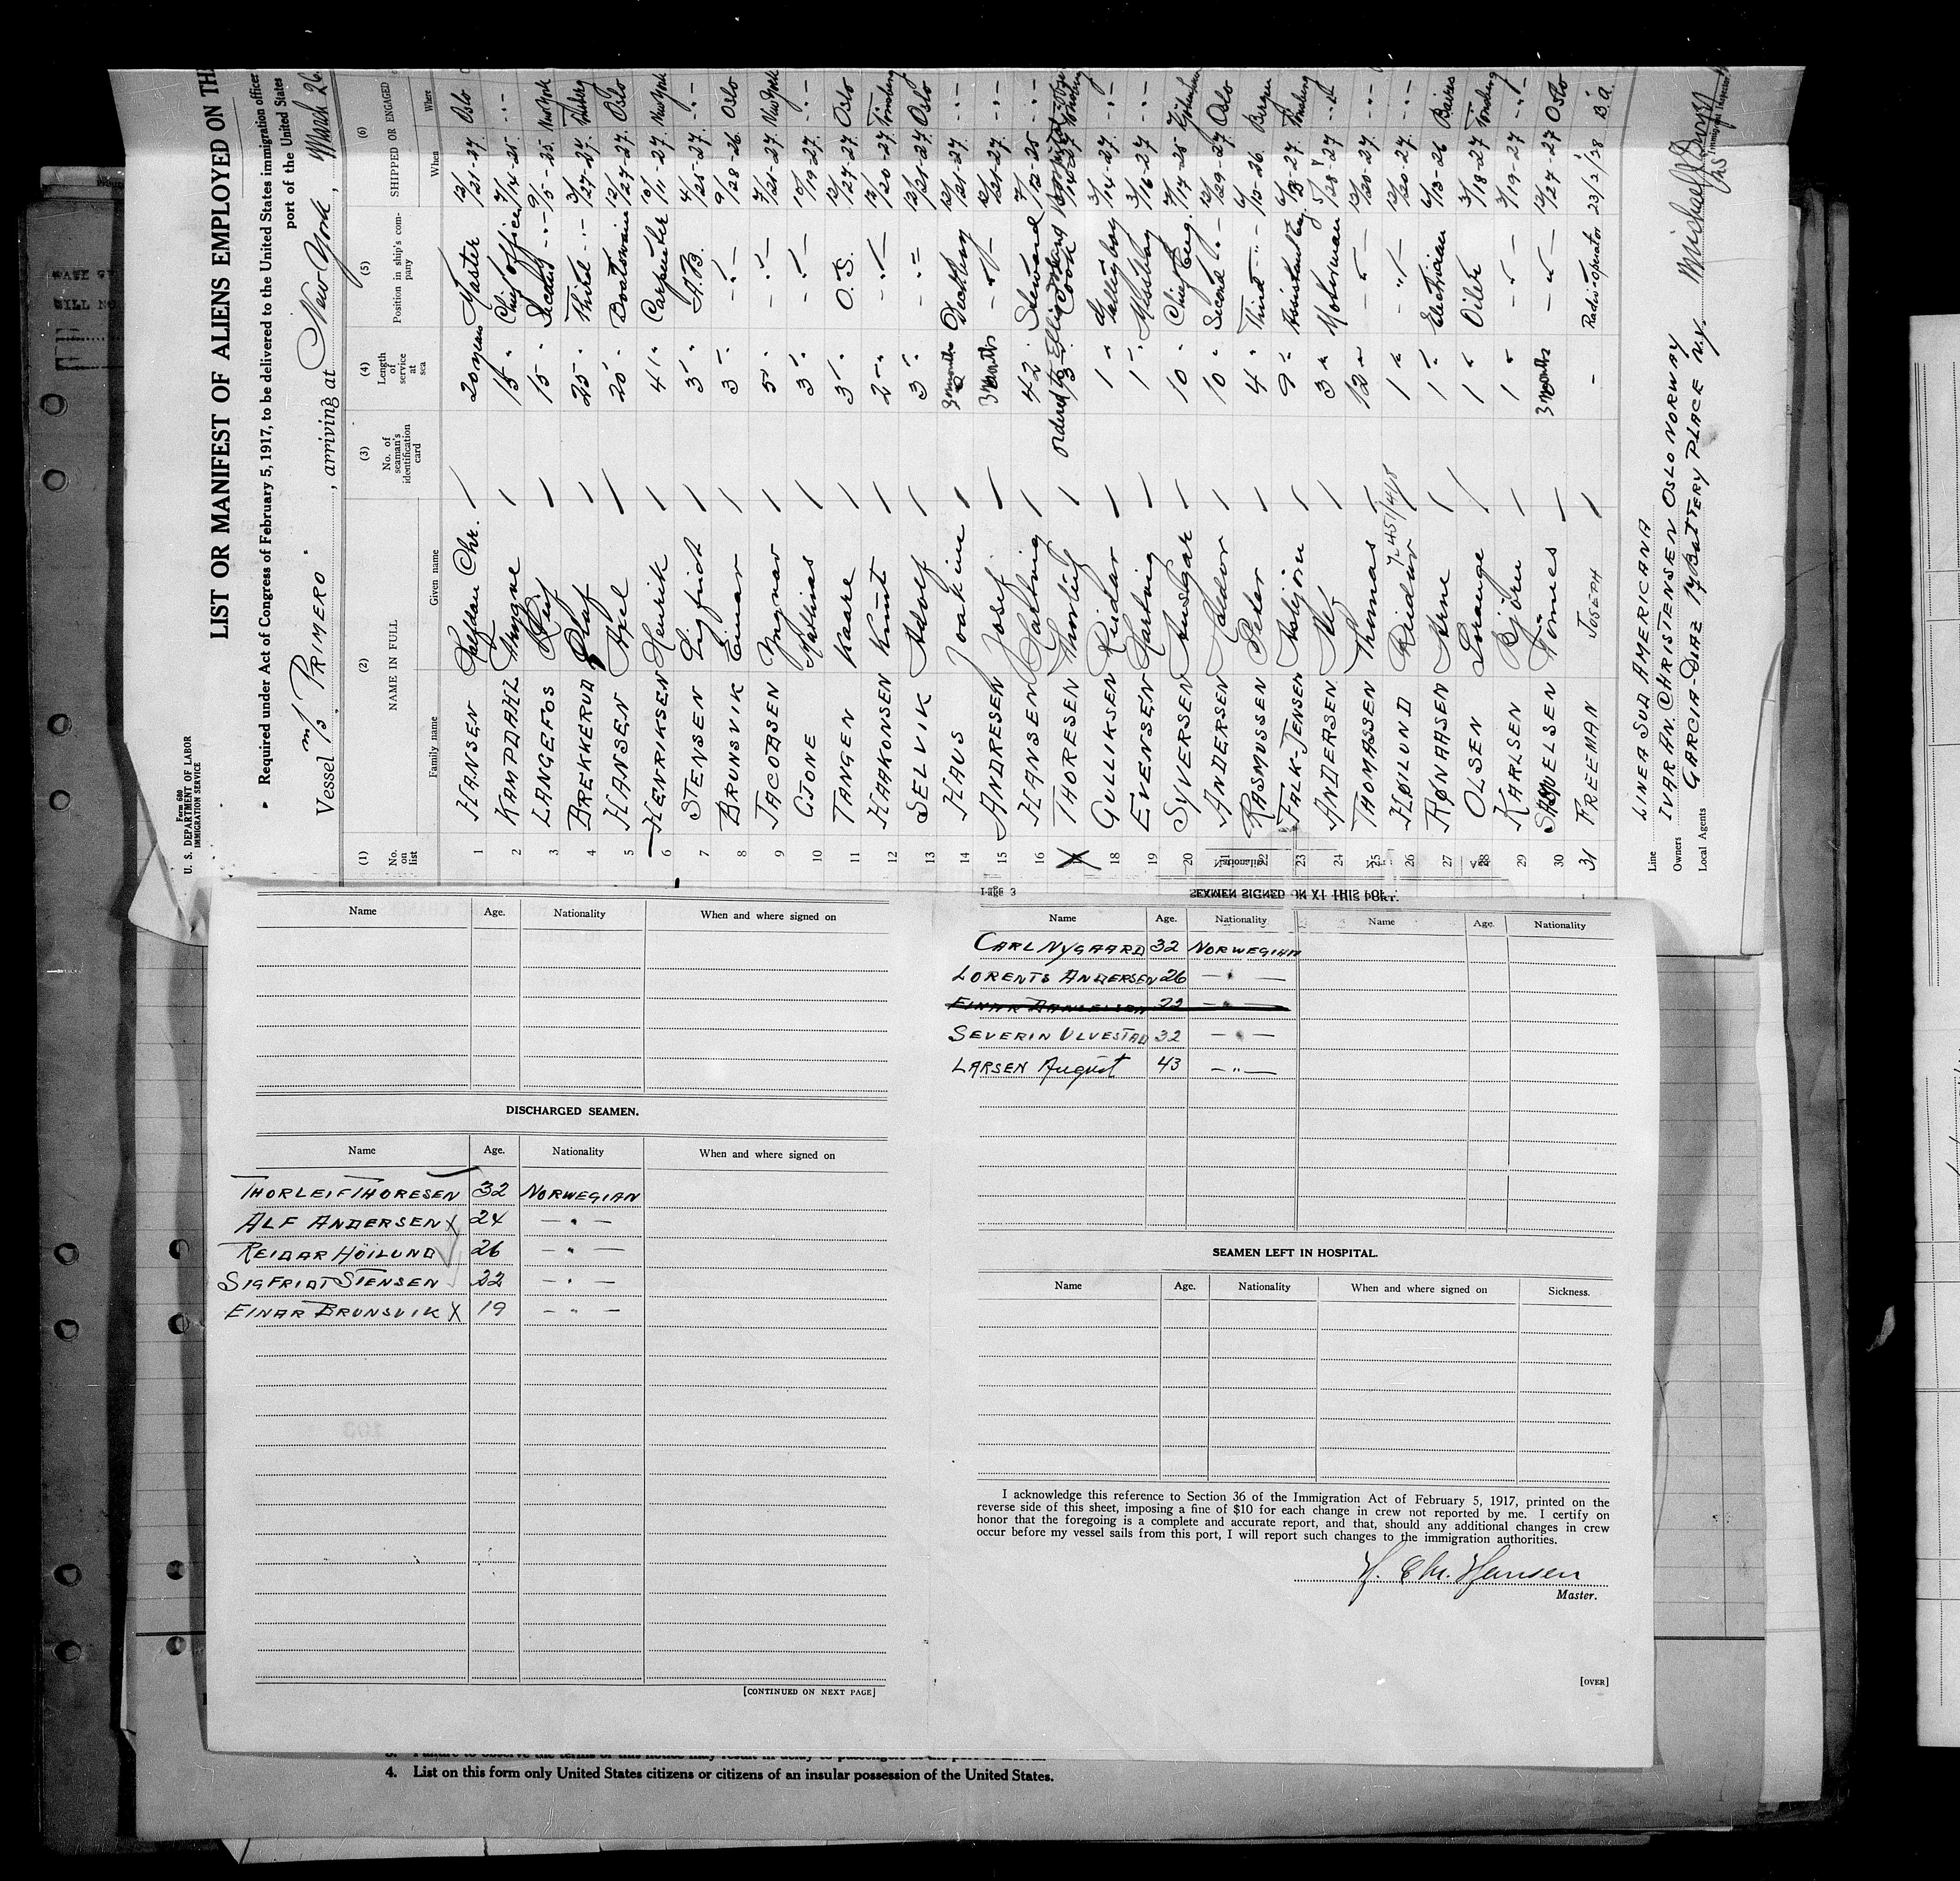 Form 680
U. S. DEPARTMENT OF LABOR
IMMIGRATION SERVICE
LIST OR MANIFEST OF ALIENS EMPLOYED ON TH
Required under Act of Congress of February 5, 1917, to be delivered to the United States immigration officer
port of the United States
Vessel M/S PRIMERO, arriving at New York, March 26
(1) (2) (3) (4) (5) (6)
No. on list NAME IN FULL No. of seaman's identification card Length of service at sea Position in ship's company SHIPPED OR ENGAGED
Family name Given name When Where
1 HANSEN Halfdan Chr. 20 years Master 12/21-27 Oslo
2 KAMPDAHL 15 " Chief officer 7/4-25
3 LANGEFOS Leif 15 " Second 9/5-25 New York
4 BREKKERUD Olaf 25 " Third 3/27-27
5 HANSEN Axel 20 " Boatswain 12/27-27 Oslo
6 HENRIKSEN Henrik 4 " Carpenter 10/11-27 New York
7 STENSEN Sigfrid 3 " A.B. 4/25-27
8 BRUNSVIK Einar 3 " 9/28-26 Oslo
9 JACOBSEN Yngvar 5 " 7/21-27 New York
10 GJONE Mathias 3 " 10/19-27
11 TANGEN Kaare 3 " O.S. 12/27-27 Oslo
12 HAAKONSEN Knut 2 " 12/20-27 Tönsberg
13 SELVIK Adolf 3 " 12/21-27 Oslo
14 HAUS Joakim 3 months Deckboy 12/21-27
15 ANDRESEN Josef 3 months 12/21-27
16 HANSEN Hartvig 42 " Steward 7/12-25
17 THORESEN Thorleif 3 Cook
ordered to Ellis Island Hospital
18 GULLIKSEN Reidar 1 " Galleyboy 3/14-27
19 EVENSEN Hartvig 1 " Messboy 3/16-27
20 SYVERSEN Ansgar 10 " Chief Eng. 7/14-25
21 ANDERSEN Haldor 10 " Second 12/29-27 Oslo
22 RASMUSSEN Peder 4 " Third 6/15-26 Bergen
23 FALK-JENSEN Asbjörn 9 " Assistant eng. Tönsberg
24 ANDERSEN Alf 3 " Motorman 5/28-27
25 THOMASSEN Thomas 12 " 12/20-27
26 HØILUND Reidar 1 " 12/20-27
27 RØNAASEN Arne 1 " Electrician 6/13-26
28 OLSEN 1 " Oiler 3/18-27 Tönsberg
29 KARLSEN Björn 1 " 3/19-27
30 SAMUELSEN Tönnes 3 months 12/27-27 Oslo
31 FREEMAN JOSEPH - Radio-operator 23/2/28 B.A.
Line LINEA SUD AMERICANA
Owners IVAR AN. CHRISTENSEN OSLO NORWAY
Local Agents GARCIA-DIAZ 17 BATTERY PLACE N.Y.
Immigrant Inspector
Name Age. Nationality When and where signed on
DISCHARGED SEAMEN.
Name Age. Nationality When and where signed on
THORLEIF THORESEN 32 NORWEGIAN
ALF ANDERSEN X 24 — " —
REIDAR HÖILUND 26 — " —
SIGFRIDT STENSEN 22 — " —
EINAR BRUNSVIK X 19 — " —
[CONTINUED ON NEXT PAGE]
Page 3
SEAMEN SIGNED ON AT THIS PORT.
Name Age. Nationality Name Age. Nationality
CARL NYGAARD 32 NORWEGIAN
LORENTS ANDERSEN 26 — " —
EINAR DANIELSEN 22 — " —
SEVERIN ULVESTAD 32 — " —
LARSEN August 43 — " —
SEAMEN LEFT IN HOSPITAL.
Name Age. Nationality When and where signed on Sickness.
I acknowledge this reference to Section 36 of the Immigration Act of February 5, 1917, printed on the
reverse side of this sheet, imposing a fine of $10 for each change in crew not reported by me. I certify on
honor that the foregoing is a complete and accurate report, and that, should any additional changes in crew
occur before my vessel sails from this port, I will report such changes to the immigration authorities.
H. Chr. Hansen
Master.
[OVER]
4. List on this form only United States citizens or citizens of an insular possession of the United States.